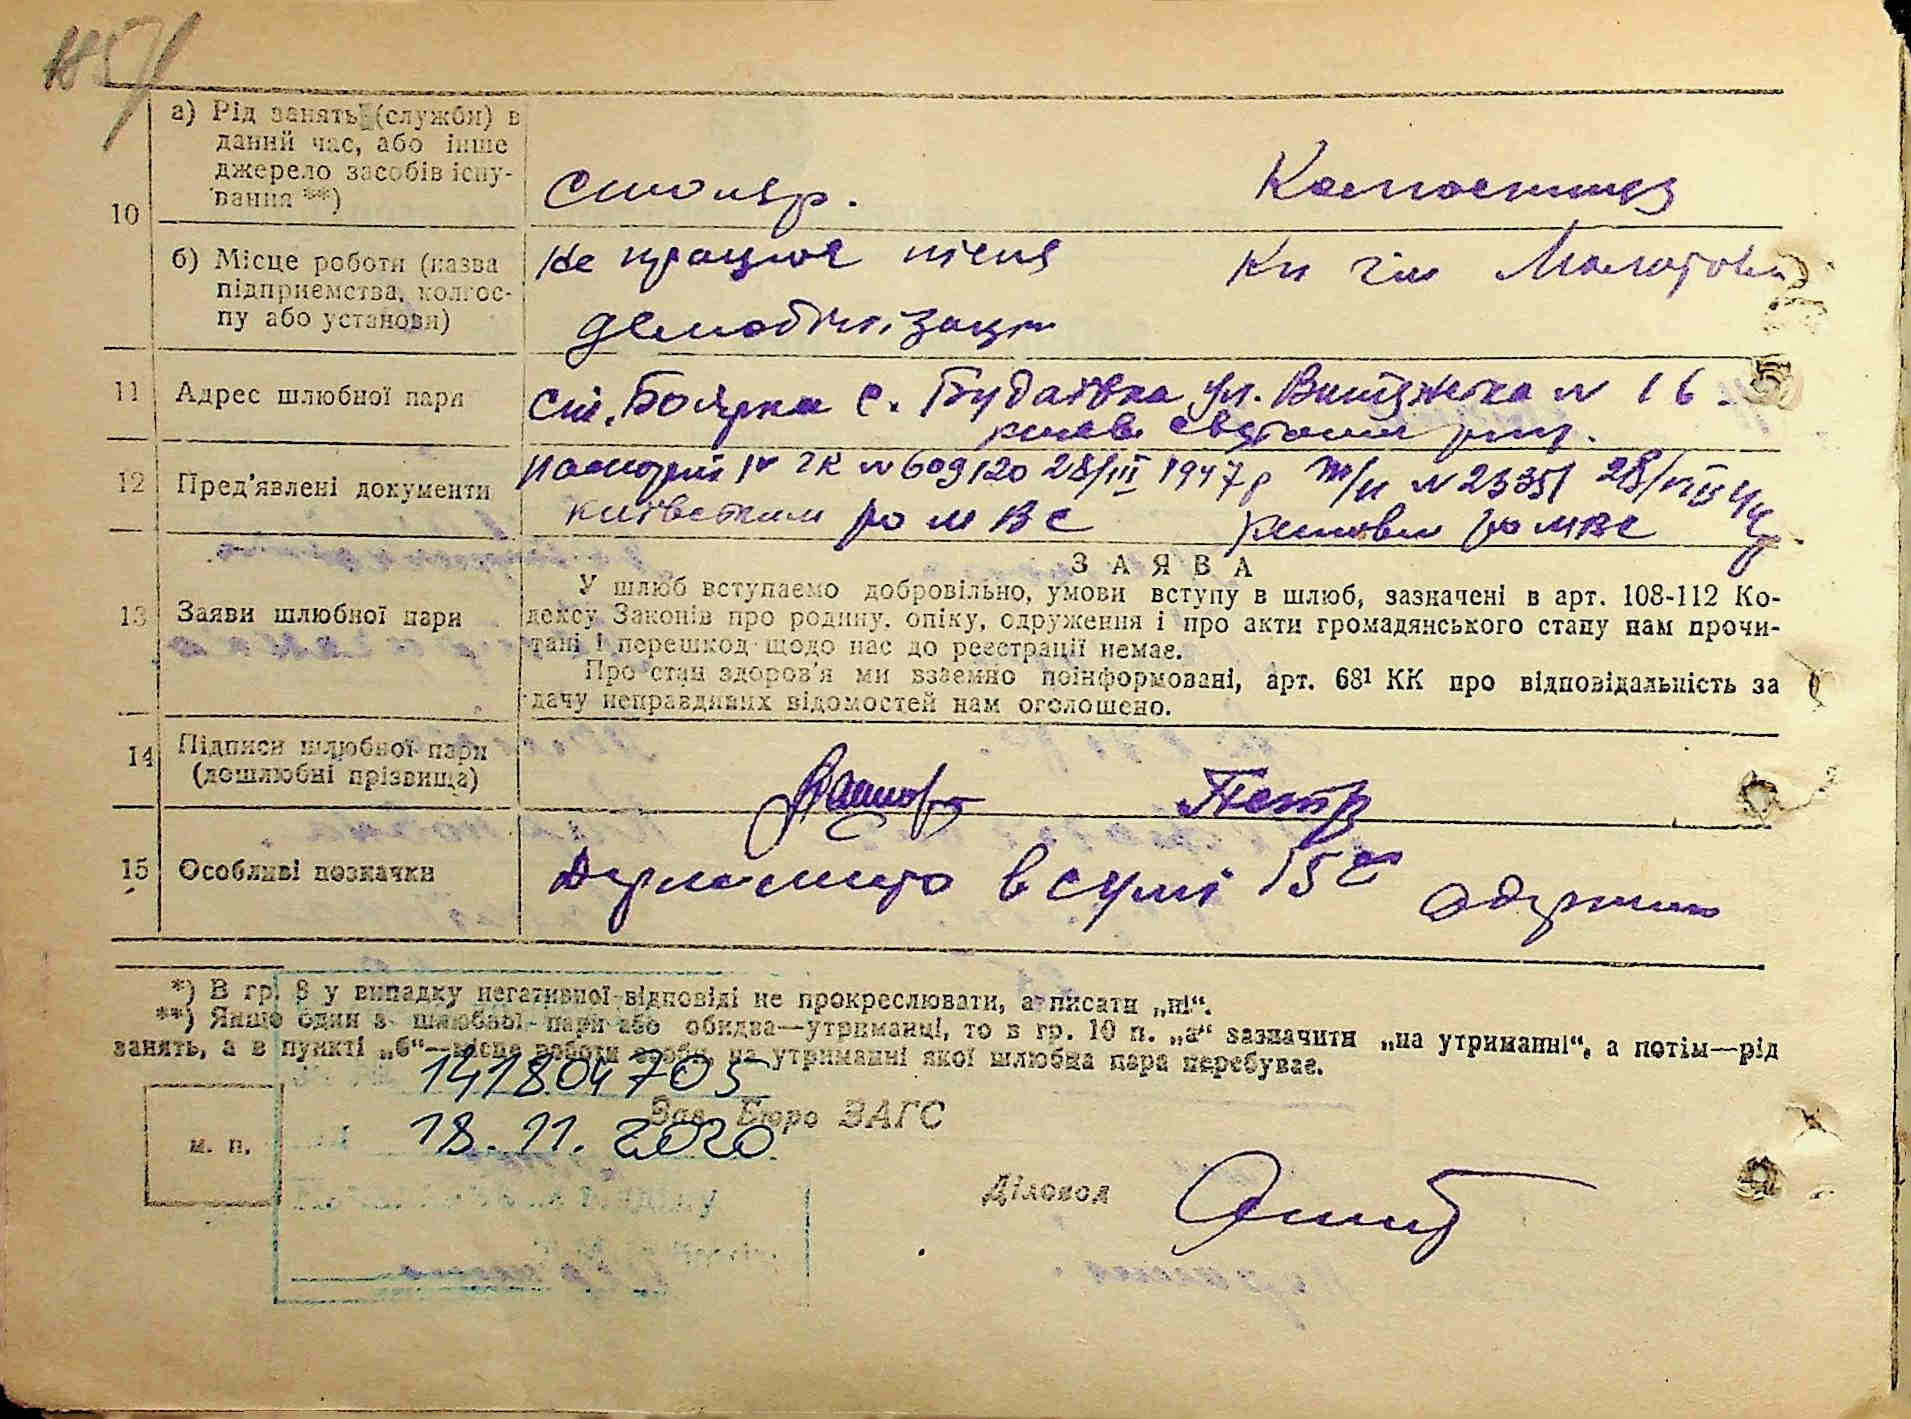 а) Рід занять (служби) в
даний час, або інше
джерело засобів існу-
вання **)
столяр.
10
б) Місце роботи (назва
підприємства, колгос-
пу або установи)
Не працює після
демобілізаціи
Кп ім Молотова
11 Адрес шлюбної пари
ст. Боярка с. Будаївка ул. Витяжна N 16
12 Пред'явлені документи
паспорт IV ЧК N 609120 28/III 1947 р N 23351 28/VIII
Київським РО МВС РО МВС
З А Я В А
13 Заяви шлюбної пари
У шлюб вступаємо добровільно, умови вступу в шлюб, зазначені в арт. 108-112 Ко-
дексу Законів про родину, опіку, одруження і про акти громадянського стану нам прочи-
тані і перешкод щодо нас до реєстрації немає.
Про стан здоров'я ми взаємно поінформовані, арт. 68¹ КК про відповідальність за
дачу неправдивих відомостей нам оголошено.
14 Підписи шлюбної пари
(дошлюбні прізвища)
Петр
15 Особливі позначки
в сумі 15
*) В гр. 8 у випадку негативної відповіді не прокреслювати, а писати „ні“.
**) Якщо один з шлюбної пари або обидва—утриманці, то в гр. 10 п. „а“ зазначити „на утриманні“, а потім—рід
занять, а в пункті „б“—місце роботи особи, на утриманні якої шлюбна пара перебуває.
141804705
Зав. Бюро ЗАГС
18.11.2020
м. п.
Діловод